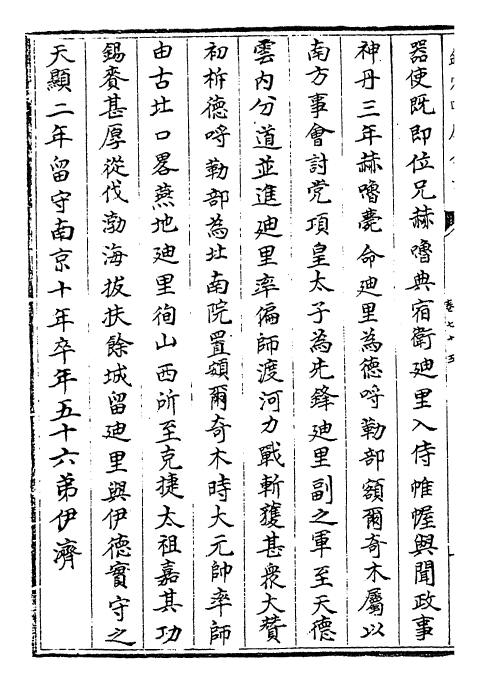 器使既即位兄赫嚕典宿衛廸里入侍帷幄與聞政事
神丹三年赫嚕薨命廸里為德哷勒部額爾奇木屬以
南方事會討党項皇太子為先鋒廸里副之軍至天德
雲内分道並進廸里率偏師渡河力戰斬獲甚衆大贊
初析德哷勒部為北南院置額爾奇木時大元帥率師
由古北口畧燕地廸里徇山西所至克捷太祖嘉其功
錫賚甚厚從伐渤海拔扶餘城留廸里與伊德實守之
天顯二年留守南京十年卒年五十六弟伊濟
卷七十五